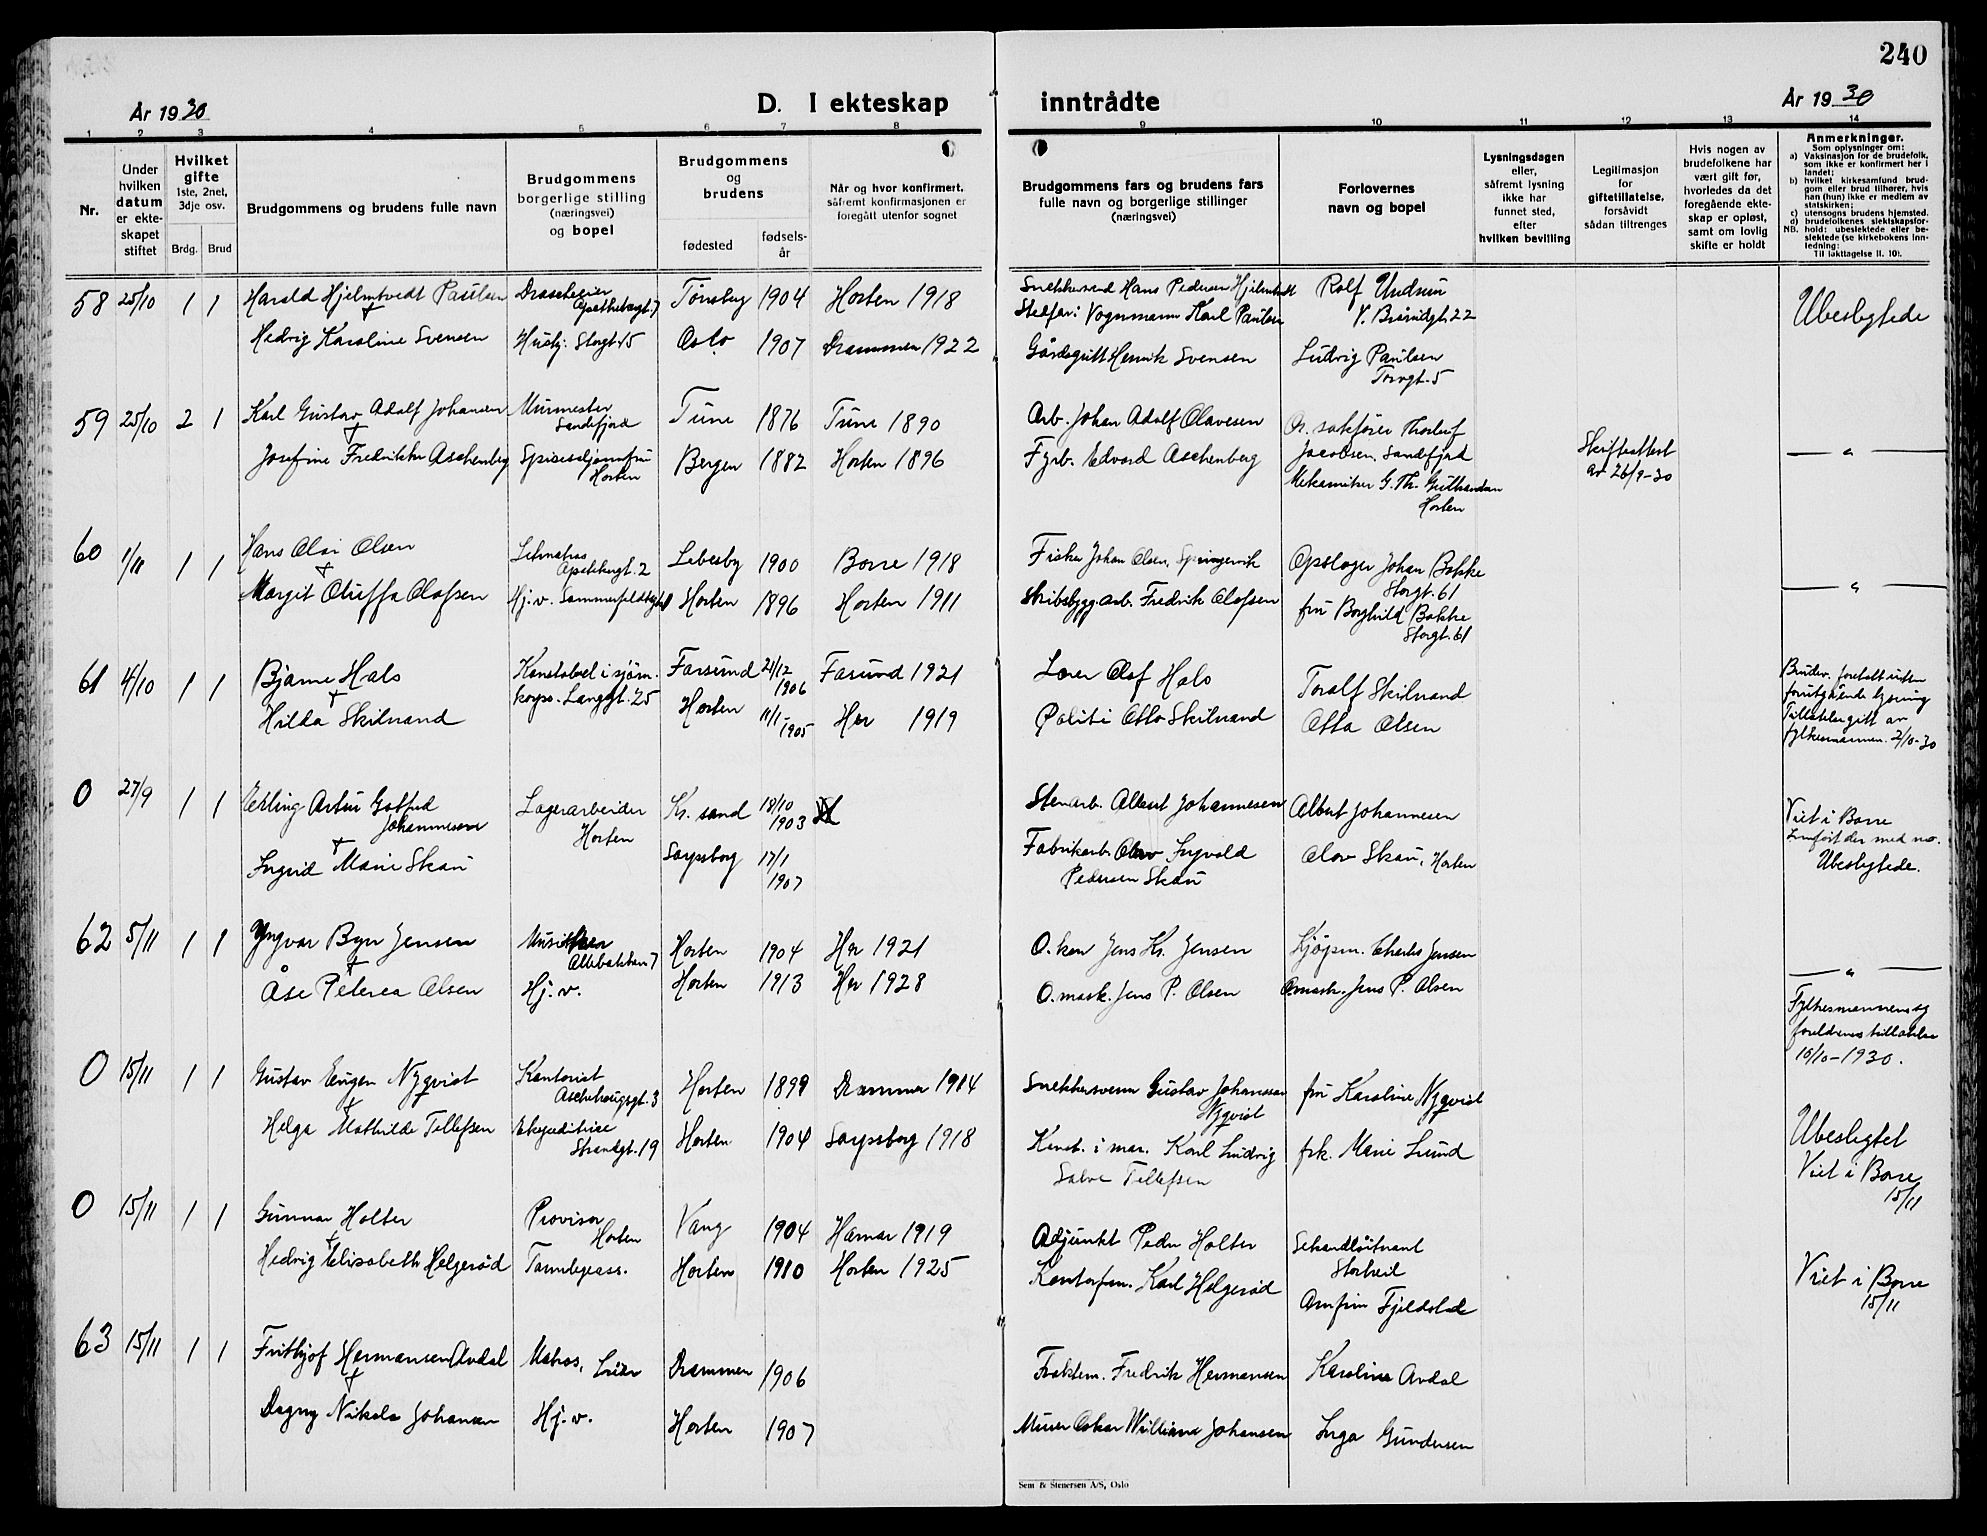 240
År 1930
D. I ekteskap inntrådte
År 1930
1 2 3 4 5 6 7 8 9 10 11 12 13 14
Nr.
Under
hvilken
datum
er ekte-
skapet
stiftet
Hvilket
gifte
1ste, 2net,
3dje osv.
Brdg. Brud
Brudgommens og brudens fulle navn
Brudgommens
borgerlige stilling
(næringsvei)
og bopel
Brudgommens
og
brudens
fødested
fødsels-
år
Når og hvor konfirmert,
såfremt konfirmasjonen er
foregått utenfor sognet
Brudgommens fars og brudens fars
fulle navn og borgerlige stillinger
(næringsvei)
Forlovernes
navn og bopel
Lysningsdagen
eller,
såfremt lysning
ikke har
funnet sted,
efter
hvilken bevilling
Legitimasjon
for
giftetillatelse,
forsåvidt
sådan tiltrenges
Hvis nogen av
brudefolkene har
vært gift før,
hvorledes da det
foregående ekte-
skap er opløst,
samt om lovlig
skifte er holdt
Anmerkninger.
Som oplysninger om:
a) Vaksinasjon for de brudefolk,
som ikke er konfirmert her i
landet;
b) hvilket kirkesamfund brud-
gom eller brud tilhører, hvis
han (hun) ikke er medlem av
statskirken;
c) utensogns brudens hjemsted.
d) brudefolkenes slektskapsfor-
hold: ubeslektede eller be-
slektede (se kirkebokens inn-
ledning:
NB.
Til iakttagelse II. 10).
58 25/10 1 1 Harald Hjelmtvedt Paulsen Tønsberg 1904 Horten 1918 Hans Pedersen Rolf Undrum Ubeslegtede
Stedfar: Vognmann Karl Paulsen 22
Hedvig Karoline Svensen Storgt. 15 Oslo 1907 Drammen 1922 Henrik Svensen Ludvig Paulsen
Torvgt. 5
59 25/10 2 1 Karl Gustav Adolf Johansen Murmester Tune 1876 Tune 1890 Arb. Johan Adolf Olavesen O. sakfører
Sandefjord
Josefine Fredrikke Aschenberg Bergen 1882 Horten 1896 Fyrb. Edvard Aschenberg Jacobsen, Sandefjord Skifteattest — " —
Horten av 26/9-30
Mekaniker G. Th.
Horten
60 1/11 1 1 Hans Olai Olsen Lebesby 1900 Borre 1918 Fisker Johan Olsen, Opsloger Johan Bakke
Apotekergt. 2 Storgt. 61 — " —
Margit Oluffa Olafsen Hj. v. Horten 1896 Horten 1911 Skibsbygg. arb. Fredrik Olafsen fru Borghild Bakke
Storgt. 61
61 4/10 1 1 Bjarne Hals Konstabel i sjøm. Farsund 21/12 1906 Farsund 1921 Lærer Olaf Hals Toralf Skilnand
korps. Langgt. 25
Hilda Skilnand Horten 11/1 1905 Her 1919 Politi Otto Skilnand Otto Olsen
Brudev. foretatt uten
forutgående lysning
Tillatelse gitt av
fylkesmannen. 2/10-30
0 27/9 1 1 Erling Artur Gotfred Lagerarbeider Kr. sand 18/10 1903 Stenarb. Albert Johannesen Albert Johannesen Viet i Borre
Johannesen Horten Innført der med no.
Ingrid Marie Skau Sarpsborg 17/1 1907 Fabrikarb. Olav Ingvald Olav Skau, Horten Ubeslegtede.
Pedersen Skau
62 5/11 1 1 Yngvar Byn Jensen Horten 1904 Her 1921 O. kan Jens Kr. Jensen Kjøpm. Charles Jensen
Åse Peterea Olsen Hj. v. Horten 1913 Her 1928 O. mask. Jens P. Olsen O. mask. Jens P. Olsen — " —
Fylkesmannens og
foreldrenes tillatelse
10/10-1930.
0 15/11 1 1 Gustav Eugen Nyqvist Kontorist Horten 1899 Drammen 1914 Snekkersvenn Gustav Johanssen fru Karoline Nyqvist
Aschehougsgt. 3 Nyqvist
Helga Mathilde Tellefsen Ekspeditrise Horten 1904 Sarpsborg 1918 Konst. i mar. Karl Ludvig frk. Marie Lund Ubeslegtet
Strandgt. 19 Salve Tellefsen Viet i Borre
15/11
0 15/11 1 1 Gunnar Holter Provisor Vang 1904 Hamar 1919 Adjunkt Peder Holter Sekondløitnant
Horten Storheil
Hedvig Elisabeth Helgerød Tannlegeass. Horten 1910 Horten 1925 Kontorfm. Karl Helgerød Arnfinn Viet i Borre
15/11
63 15/11 1 1 Frithjof Hermansen Avdal Matros, Lier Drammen 1906 Fredrik Hermansen Karoline Avdal
Dagny Nikola Johansen Hj. v. Horten 1907 Murer Oskar William Johansen Inga Gundersen
Sem & Stenersen A/S, Oslo